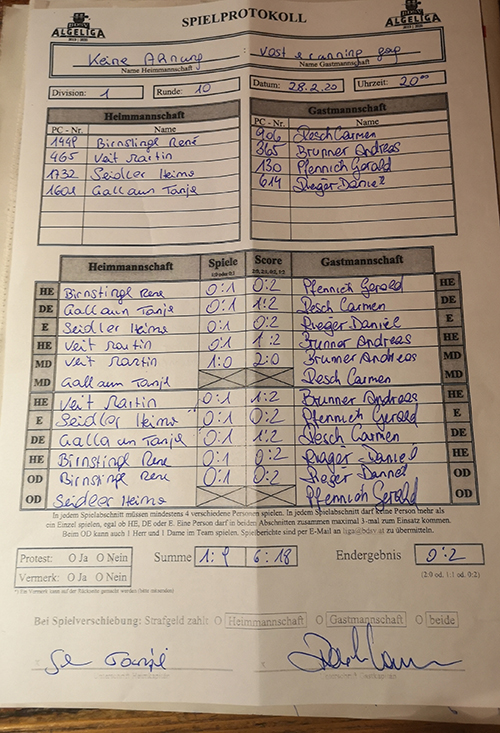 ALGELIGA SPIELPROTOKOLL ALGELIGA
Keine Ahnung : vost scanning gag
Name Heimmannschaft Name Gastmannschaft
Division: 1 Runde: 10 Datum: 28.2.20 Uhrzeit: 20⁰⁰
Heimmannschaft Gastmannschaft
PC - Nr. Name PC - Nr. Name
1449 Birnstingl René 906 Resch Carmen
465 Veit Martin 365 Brunner Andreas
1732 Seidler Heimo 130 Pfennich Gerald
1601 Gallaun Tanja 614 Rieger Daniel
Heimmannschaft Spiele Score Gastmannschaft
HE Birnstingl Rene 0:1 0:2 Pfennich Gerald HE
DE Gallaun Tanja 0:1 1:2 Resch Carmen DE
E Seidler Heimo 0:1 0:2 Rieger Daniel E
HE Veit Martin 0:1 1:2 Brunner Andreas HE
MD Veit Martin 1:0 2:0 Brunner Andreas MD
MD Gallaun Tanja Resch Carmen MD
HE Veit Martin 0:1 1:2 Brunner Andreas HE
E Seidler Heimo 0:1 0:2 Pfennich Gerald E
DE Gallaun Tanja 0:1 1:2 Resch Carmen DE
HE Birnstingl Rene 0:1 0:2 Rieger Daniel HE
OD Birnstingl Rene 0:1 0:2 Rieger Daniel OD
OD Seidler Heimo Pfennich Gerald OD
In jedem Spielabschnitt müssen mindestens 4 verschiedene Personen spielen. In jedem Spielabschnitt darf keine Person mehr als
ein Einzel spielen, egal ob HE, DE oder E. Eine Person darf in beiden Abschnitten zusammen maximal 3-mal zum Einsatz kommen.
Beim OD kann auch 1 Herr und 1 Dame im Team spielen. Spielberichte sind per E-Mail an liga@bdsv.at zu übermitteln.
Protest: O Ja O Nein Summe 1:9 6:18 Endergebnis 0:2
Vermerk: O Ja O Nein (2:0 od. 1:1 od. 0:2)
*) Ein Vermerk kann auf der Rückseite gemacht werden
Bei Spielverschiebung: Strafgeld zahlt: O Heimmannschaft O Gastmannschaft O beide